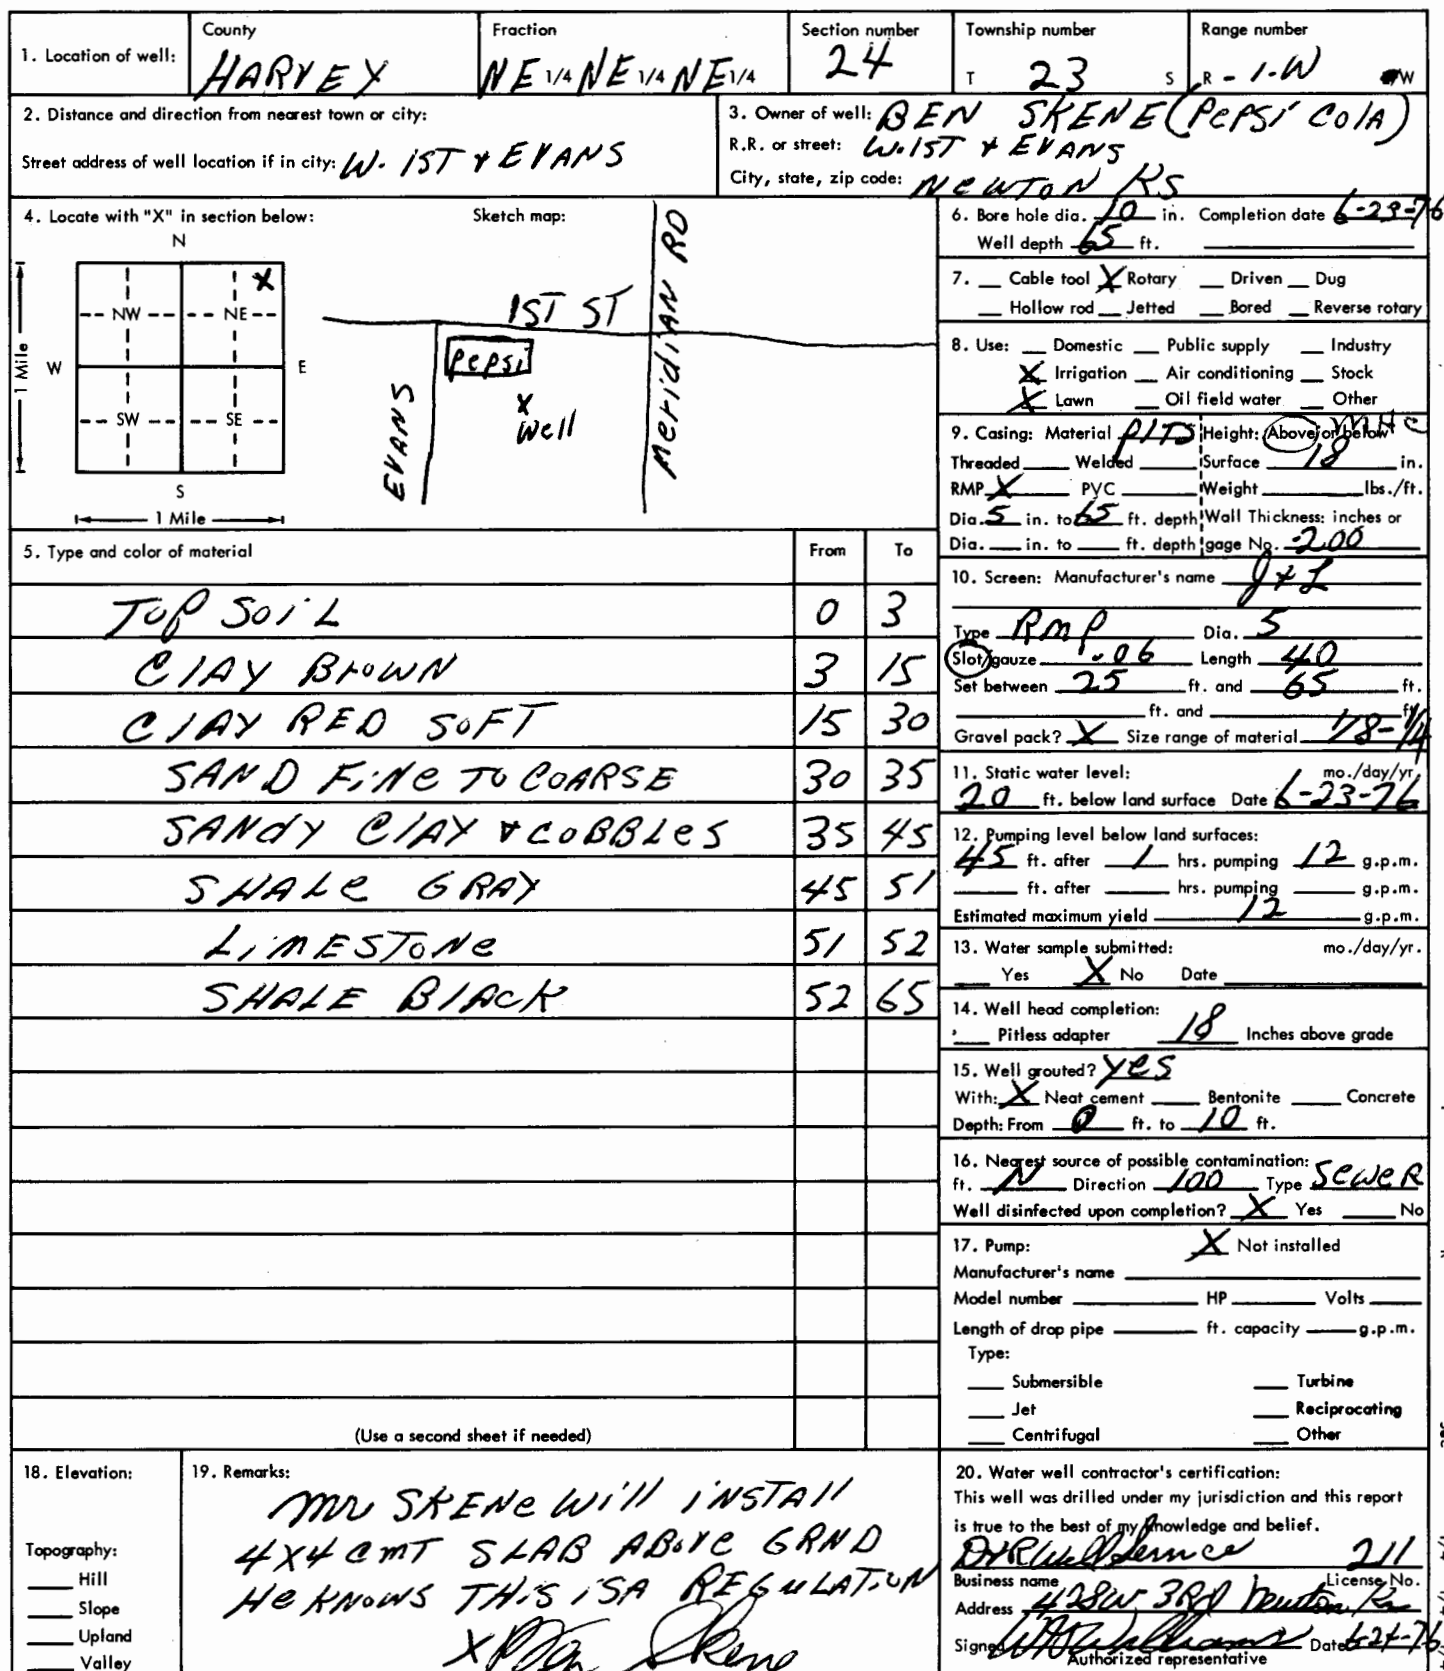 County Fraction Section number Township number Range number
1. Location of well: HARVEY NE 1/4 NE 1/4 NE 1/4 24 T 23 S R - 1-W W
2. Distance and direction from nearest town or city:
Street address of well location if in city: W. 1ST & EVANS
3. Owner of well: BEN SKENE (PEPSi COlA)
R.R. or street: W. 1ST & EVANS
City, state, zip code: NewTON KS
4. Locate with "X" in section below: Sketch map:
N
X
NW NE
W E
SW SE
S
1 Mile
1 Mile
1ST ST
Pepsi
X
Well
EVANS
Meridian RD
5. Type and color of material From To
Top Soil 0 3
ClAY BrOWN 3 15
ClAY RED SOFT 15 30
SAND FiNe TO COARSE 30 35
SANdY ClAY & COBBLeS 35 45
SHALe GRAY 45 51
LiMESTONe 51 52
SHALE BlACK 52 65
(Use a second sheet if needed)
6. Bore hole dia. 10 in. Completion date 6-23-76
Well depth 65 ft.
7. Cable tool X Rotary Driven Dug
Hollow rod Jetted Bored Reverse rotary
8. Use: Domestic Public supply Industry
X Irrigation Air conditioning Stock
X Lawn Oil field water Other
9. Casing: Material Height: Above or below
Threaded Welded Surface 18 in.
RMP X PVC Weight lbs./ft.
Dia. 5 in. to 65 ft. depth Wall Thickness: inches or
Dia. in. to ft. depth gage No. .200
10. Screen: Manufacturer's name J & L
Type RMP Dia. 5
Slot/gauze .06 Length 40
Set between 25 ft. and 65 ft.
ft. and ft.
Gravel pack? X Size range of material 1/8-1/4
11. Static water level: mo./day/yr.
20 ft. below land surface Date 6-23-76
12. Pumping level below land surfaces:
45 ft. after 1 hrs. pumping 12 g.p.m.
ft. after hrs. pumping g.p.m.
Estimated maximum yield 12 g.p.m.
13. Water sample submitted: mo./day/yr.
Yes X No Date
14. Well head completion:
Pitless adapter 18 Inches above grade
15. Well grouted? yes
With: X Neat cement Bentonite Concrete
Depth: From 0 ft. to 10 ft.
16. Nearest source of possible contamination:
ft. N Direction 100 Type SeweR
Well disinfected upon completion? X Yes No
17. Pump: X Not installed
Manufacturer's name
Model number HP Volts
Length of drop pipe ft. capacity g.p.m.
Type:
Submersible Turbine
Jet Reciprocating
Centrifugal Other
18. Elevation:
Topography:
Hill
Slope
Upland
Valley
19. Remarks:
Mr SKENe Will iNSTAll
4X4 CMT SLAB ABOVe GRND
He KNOWS THiS iS A REGuLATiON
X Ben Skene
20. Water well contractor's certification:
This well was drilled under my jurisdiction and this report
is true to the best of my knowledge and belief.
D&R Well Service 211
Business name License No.
Address 428 W 3RD Newton, Ks
Signed Date 6-24-76
Authorized representative